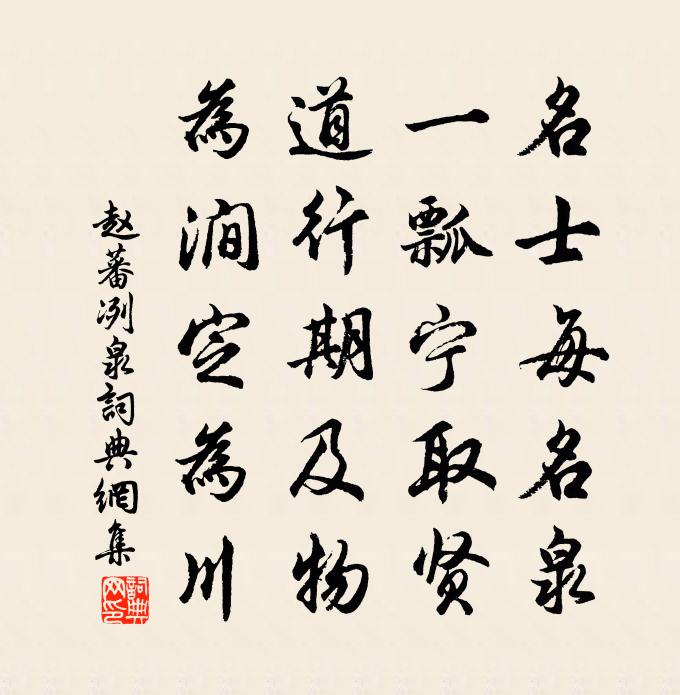 名士每名泉
一瓢宁取贤
道行期及物
為涧定為川
赵蕃冽泉詞典網集
詞典网印